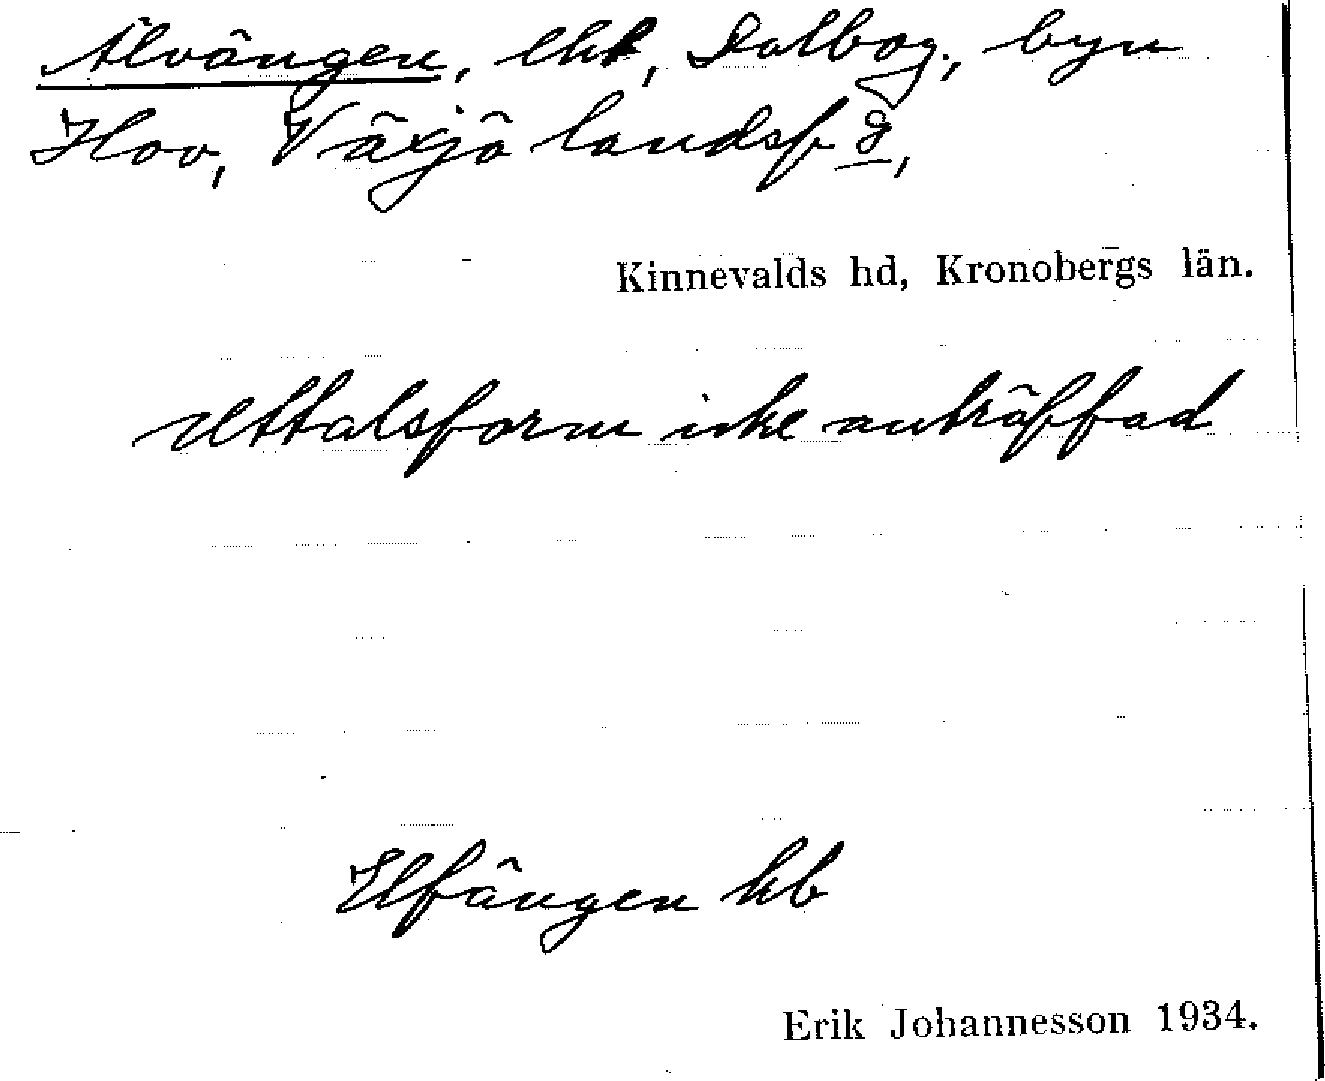 Älvängen, lht, Dalbog., byn
Hov, Växjö landsf 8,
Kinnevalds hd, Kronobergs län.
Uttalsform icke anträffad
Elfängen hb
Erik Johannesson 1934.